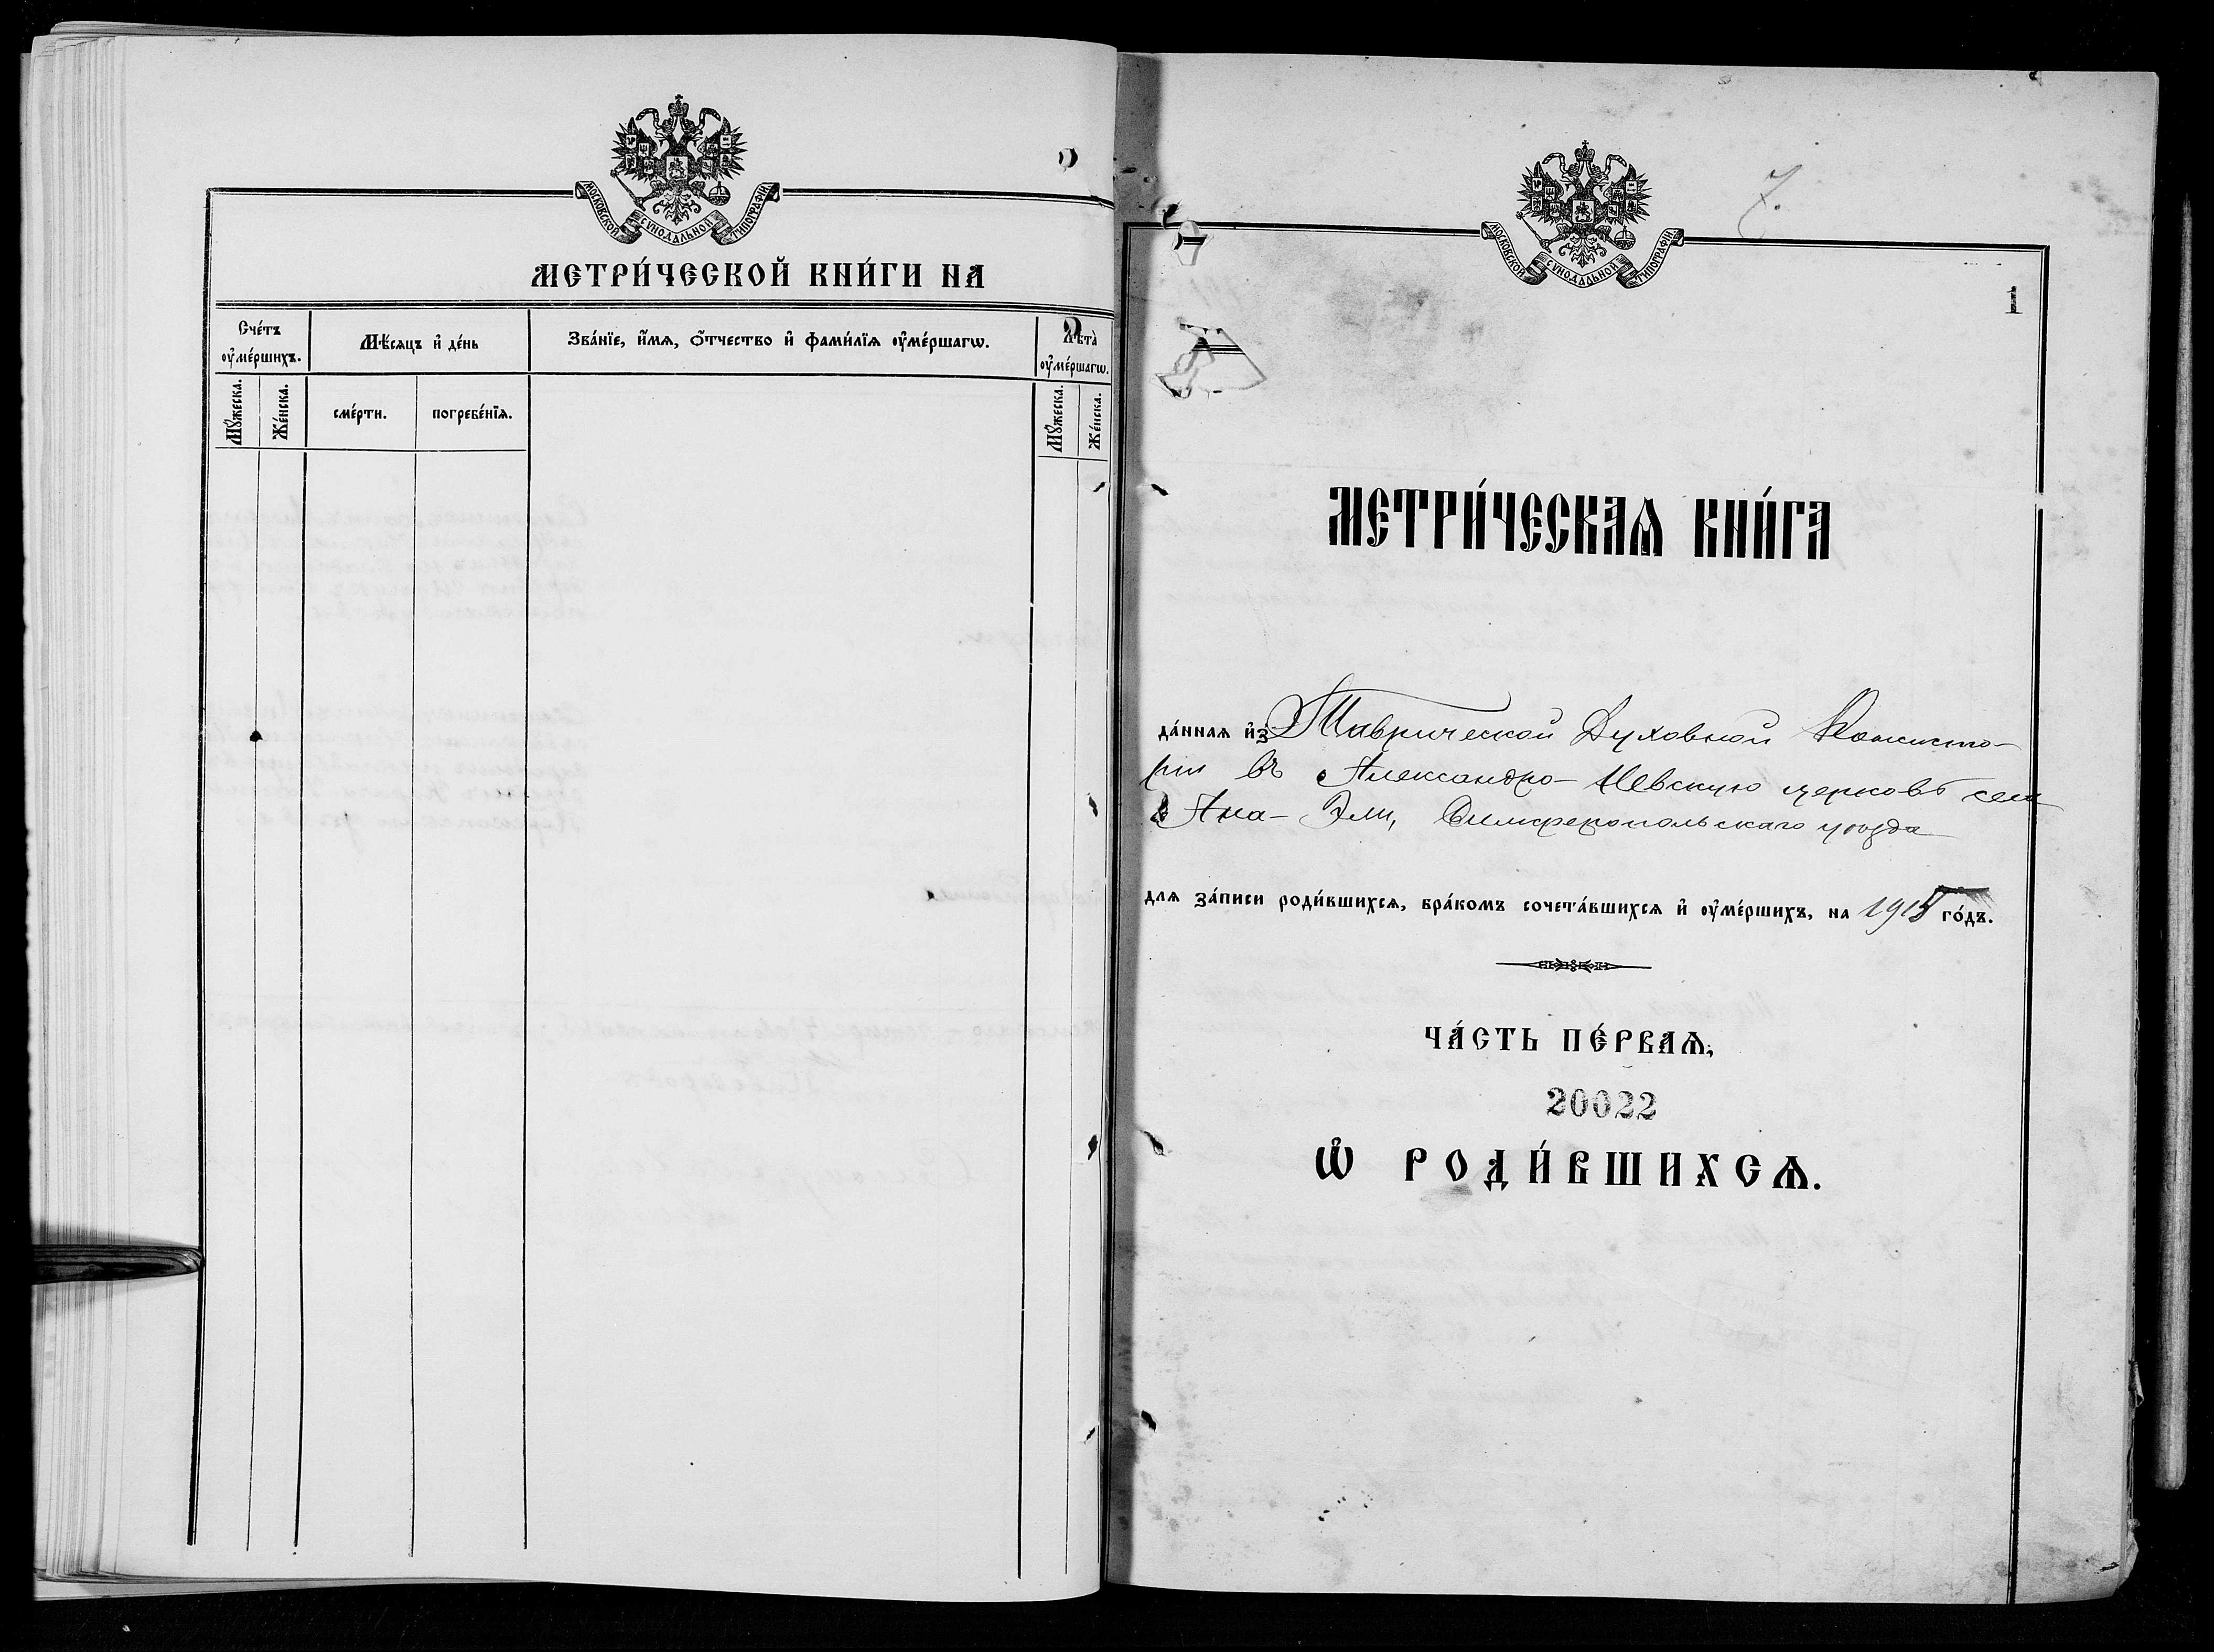 МОСКОВСКОЙ СѴНОДАЛЬНОЙ ТИПОГРАФІИ
МЕТРИ́ЧЕСКОЙ КНИ́ГИ НА
Сче́тъ ᲂу҆ме́ршихъ.
Мѣ́сяцъ и҆ де́нь
Зва́нїе, и҆́мѧ, ѻ҆́тчество и҆ фами́лїѧ ᲂу҆ме́ршагѡ.
Лѣ́та ᲂу҆ме́ршагѡ.
Мꙋ́жеска.
Же́нска.
сме́рти.
погребе́нїѧ.
Мꙋ́жеска.
Же́нска.
7.
МОСКОВСКОЙ СѴНОДАЛЬНОЙ ТИПОГРАФІИ
1
МЕТРИ́ЧЕСКАѦ КНИ́ГА
да́ннаѧ и҆з Таврической Духовной Консисто-
ріи въ Александро-Невскую церковь села
Ака-Эли, Симферопольскаго уѣзда
для за́писи роди́вшихсѧ, бра́комъ сочета́вшихсѧ и҆ ᲂу҆ме́ршихъ, на 1915 го́дъ.
ЧА́СТЬ ПЕ́РВАѦ,
20022
Ѡ҆ РОДИ́ВШИХСѦ.